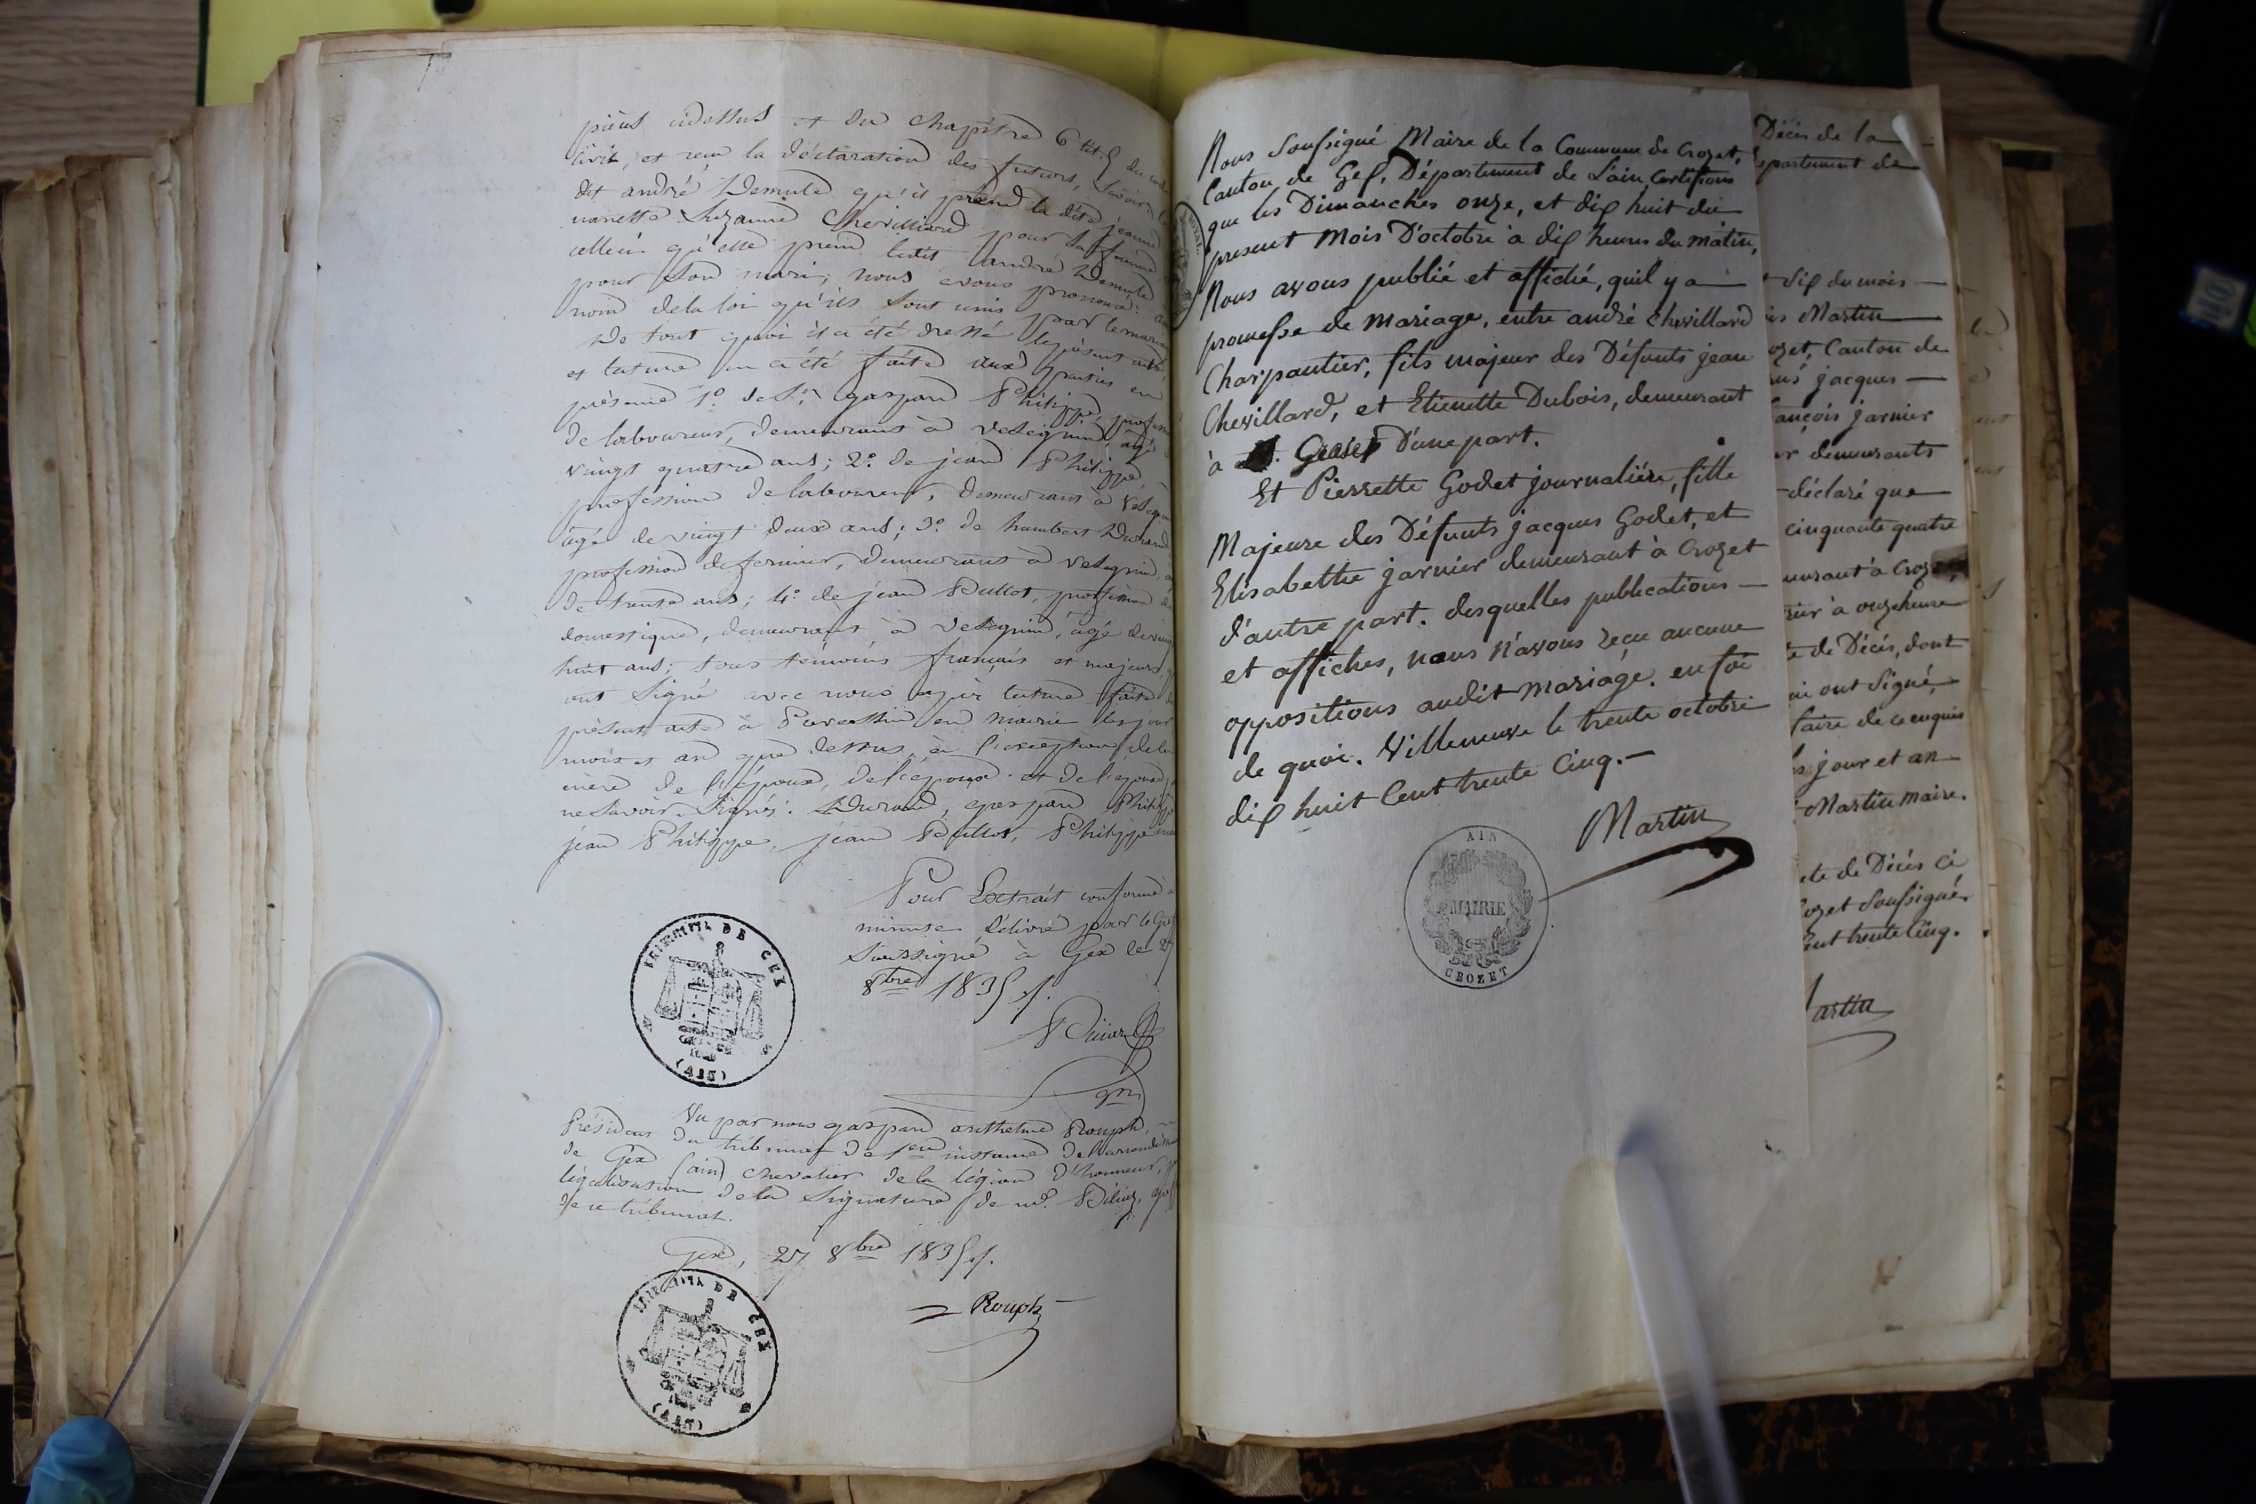 pièces cidessus et du chapitre 6 tit. 5 du code
civil, et reçu la déclaration des futurs, savoir
dit andré Demule qu'il prend la dite jeanne
nanette Suzanne Chevilliard pour sa femme
celleci qu'elle prend ledit andré Demule
pour Son mari; nous avons prononcé: au
nom dela loi qu'ils Sont unis par le mariage
De tout quoi il a été dressé leprésent acte,
et lecture en a été faite aux parties en
présence 1º. de Sr. gaspard Philippe, profession
de laboureur, demeurant à Vesegnin, agé
vingt quatre ans; 2º. de jean Philippe
profession de laboureur, demeurant à Vésegnin
agé de vingt deux ans; 3º. de humbert Durand
profession de fermier, demeurant à vesegnin,
de trente ans; 4º. de jean Bullot, profession de
domestique, demeurant à Vesegnin, agé de vingt
huit ans; tous témoins français et majeurs,
ont Signé avec nous après lecture faite du
présent acte à en mairie les jour
mois et an que dessus, à l'exception dela
mère de l'époux, de l'époux et de l'épouse
ne Savoir. Signés: Durand, gaspard Philippe
jean Philippe, jean Bullot, Philippe
Pour Extrait conforme à
minute délivré par le Gref
Soussigné à Gex le 27
8bre 1835.
TRIBUNAL DE GEX
(AIN)
Vu par nous gaspard anthelme Rouph,
Président du tribunal de 1ere instance de l'arrondissem
de Gex (ain) chevalier de la légion d'honneur,
légalisation de la Signature de md.
de ce tribunal.
Gex, 27 8bre 1835.
Rouph
TRIBUNAL DE GEX
(AIN)
Nous Soussigné Maire de la Commune de Crozet,
Canton de Gex, Département de L'ain, Certifions
que les Dimanches onze, et dix huit du
present Mois D'octobre à dix heures du matin,
Nous avons publié et affiché, quil y a
promesse de Mariage, entre andré Chevillard
Charpantier, fils majeur des Défunts jean
Chevillard, et Etienette Dubois, demeurant
à D'une part.
Et Pierrette Godet journaliére, fille
Majeure des Défunts jacques Godet, et
Elisabethe jarnier demeurant à Crozet
d'autre part. desquelles publications
et affiches, nous n'avons reçu aucune
oppositions audit mariage. en foi
de quoi. Villeneuve le trente octobre
dix huit Cent trente Cinq.
Martin
AIN
MAIRIE
CROZET
Décès de la
épartement de
dix du mois
Martin
ozet, Canton de
jacques
ançois jarnier
demeurants
déclaré que
cinquante quatre
meurant à Crozet,
à onze heure
de Décès, dont
ont Signé,
faire de ce enquis
jour et an
Martin maire.
de Décès ci
ozet Soussigné,
ent trente Cinq.
artin